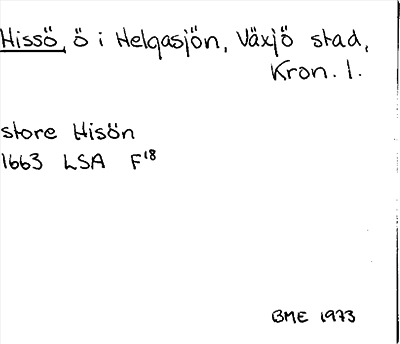 Hissö, ö i Helgasjön, Växjö stad,
Kron. l.
store Hisön
1663 LSA F18
BME 1973